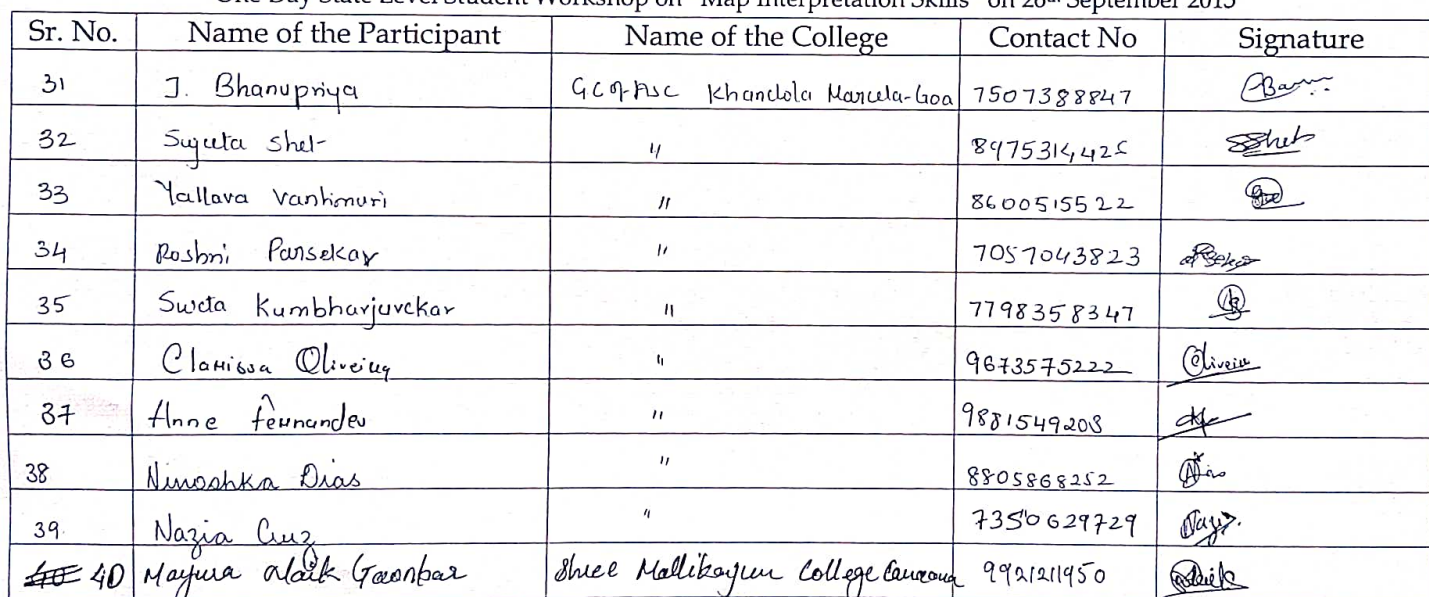 One Day State Level Student Workshop on "Map Interpretation Skills" on 26th September 2015
Sr. No. Name of the Participant Name of the College Contact No Signature
31 J. Bhanupriya GC of ASC Khandola Marcela-Goa 7507388847
32 Sujeta Shet " 8975314425 SShet
33 Yallava Vantimuri " 8600515522
34 Roshni Parsekar " 7057043823
35 Sweta Kumbharjuvekar " 7798358347
36 Clarissa Oliveira " 9673575222 Oliveira
37 Anne Fernandes " 9881549208
38 Ninoshka Dias " 8805868252 Dias
39. Nazia Cruz " 7350629729
40 Mayura Naik Gaonkar Shree Mallikarjun College Canacona 9921211950 Naik